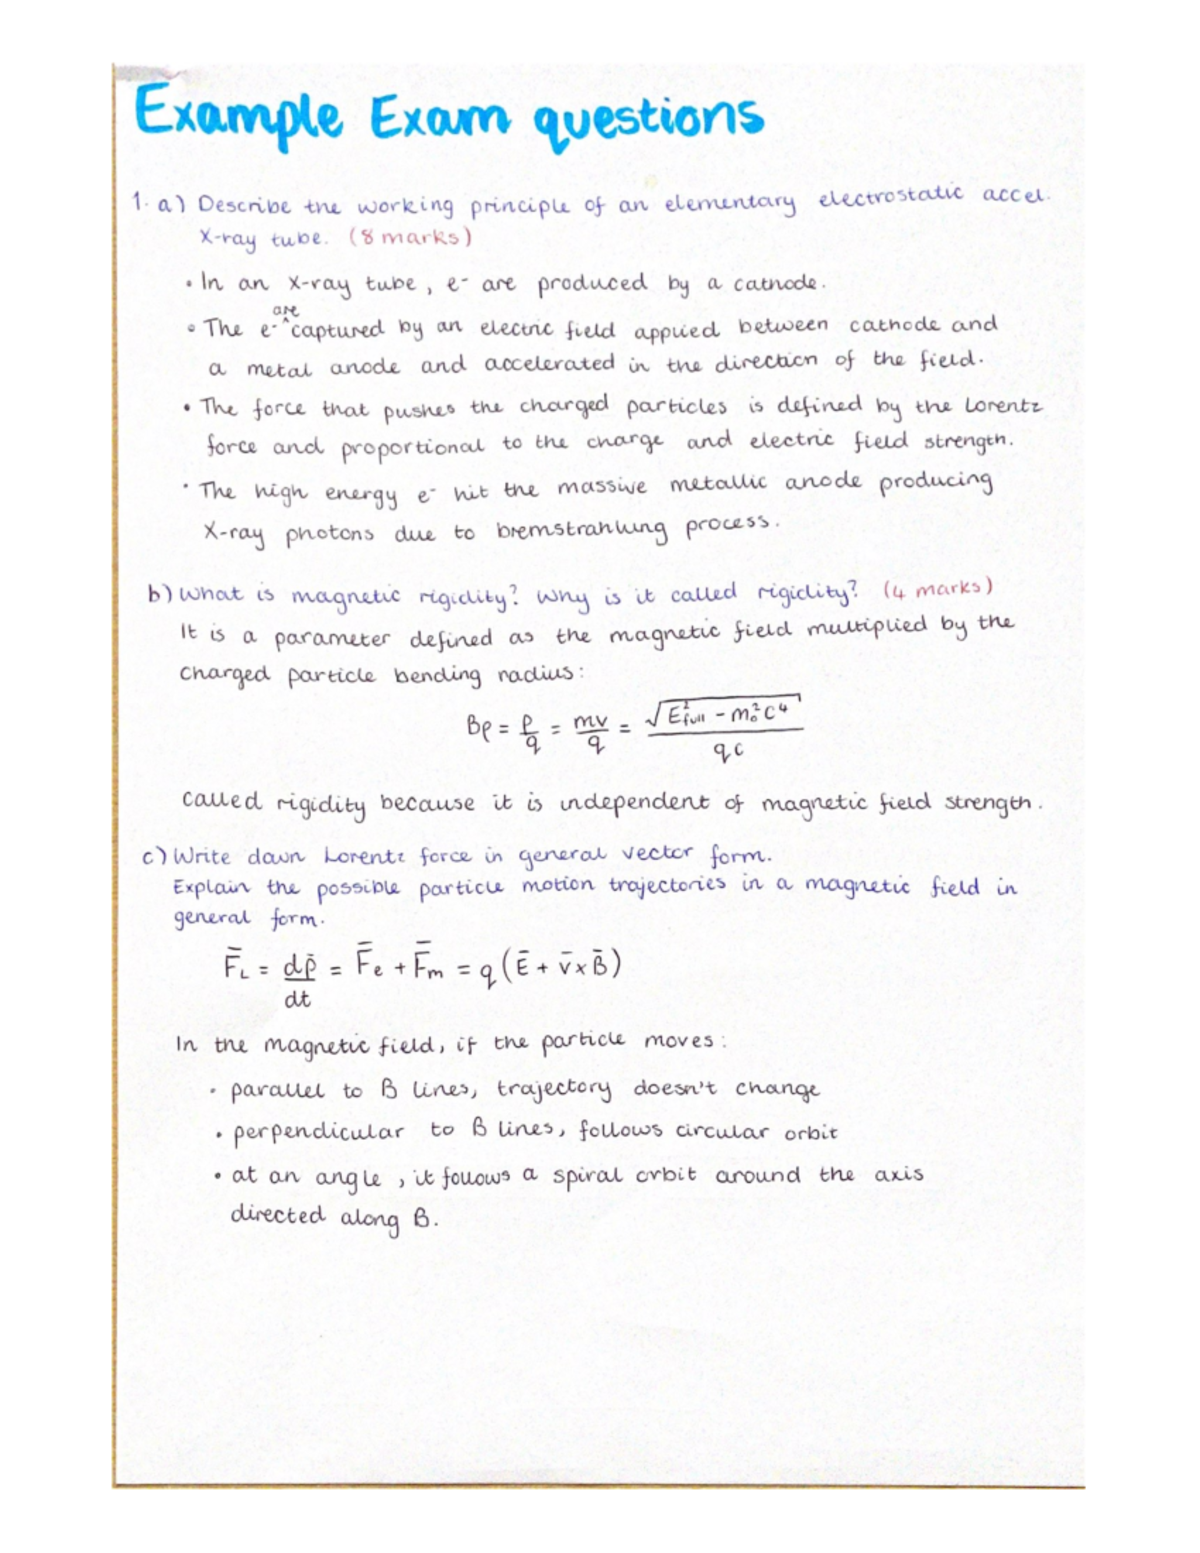 Example Exam questions
1. a) Describe the working principle of an elementary electrostatic accel.
X-ray tube. (8 marks)
• In an X-ray tube, e⁻ are produced by a cathode.
are
• The e⁻ ^captured by an electric field applied between cathode and
a metal anode and accelerated in the direction of the field.
• The force that pushes the charged particles is defined by the Lorentz
force and proportional to the charge and electric field strength.
• The high energy e⁻ hit the massive metallic anode producing
X-ray photons due to bremstrahlung process.
b) What is magnetic rigidity? Why is it called rigidity? (4 marks)
It is a parameter defined as the magnetic field multiplied by the
charged particle bending radius:
Bρ = p/q = mv/q = √(E²full - m₀²c⁴) / qc
called rigidity because it is independent of magnetic field strength.
c) Write down Lorentz force in general vector form.
Explain the possible particle motion trajectories in a magnetic field in
general form.
F̄L = dp̄/dt = F̄e + F̄m = q(Ē + v̄ × B̄)
In the magnetic field, if the particle moves:
• parallel to B lines, trajectory doesn't change
• perpendicular to B lines, follows circular orbit
• at an angle, it follows a spiral orbit around the axis
directed along B.